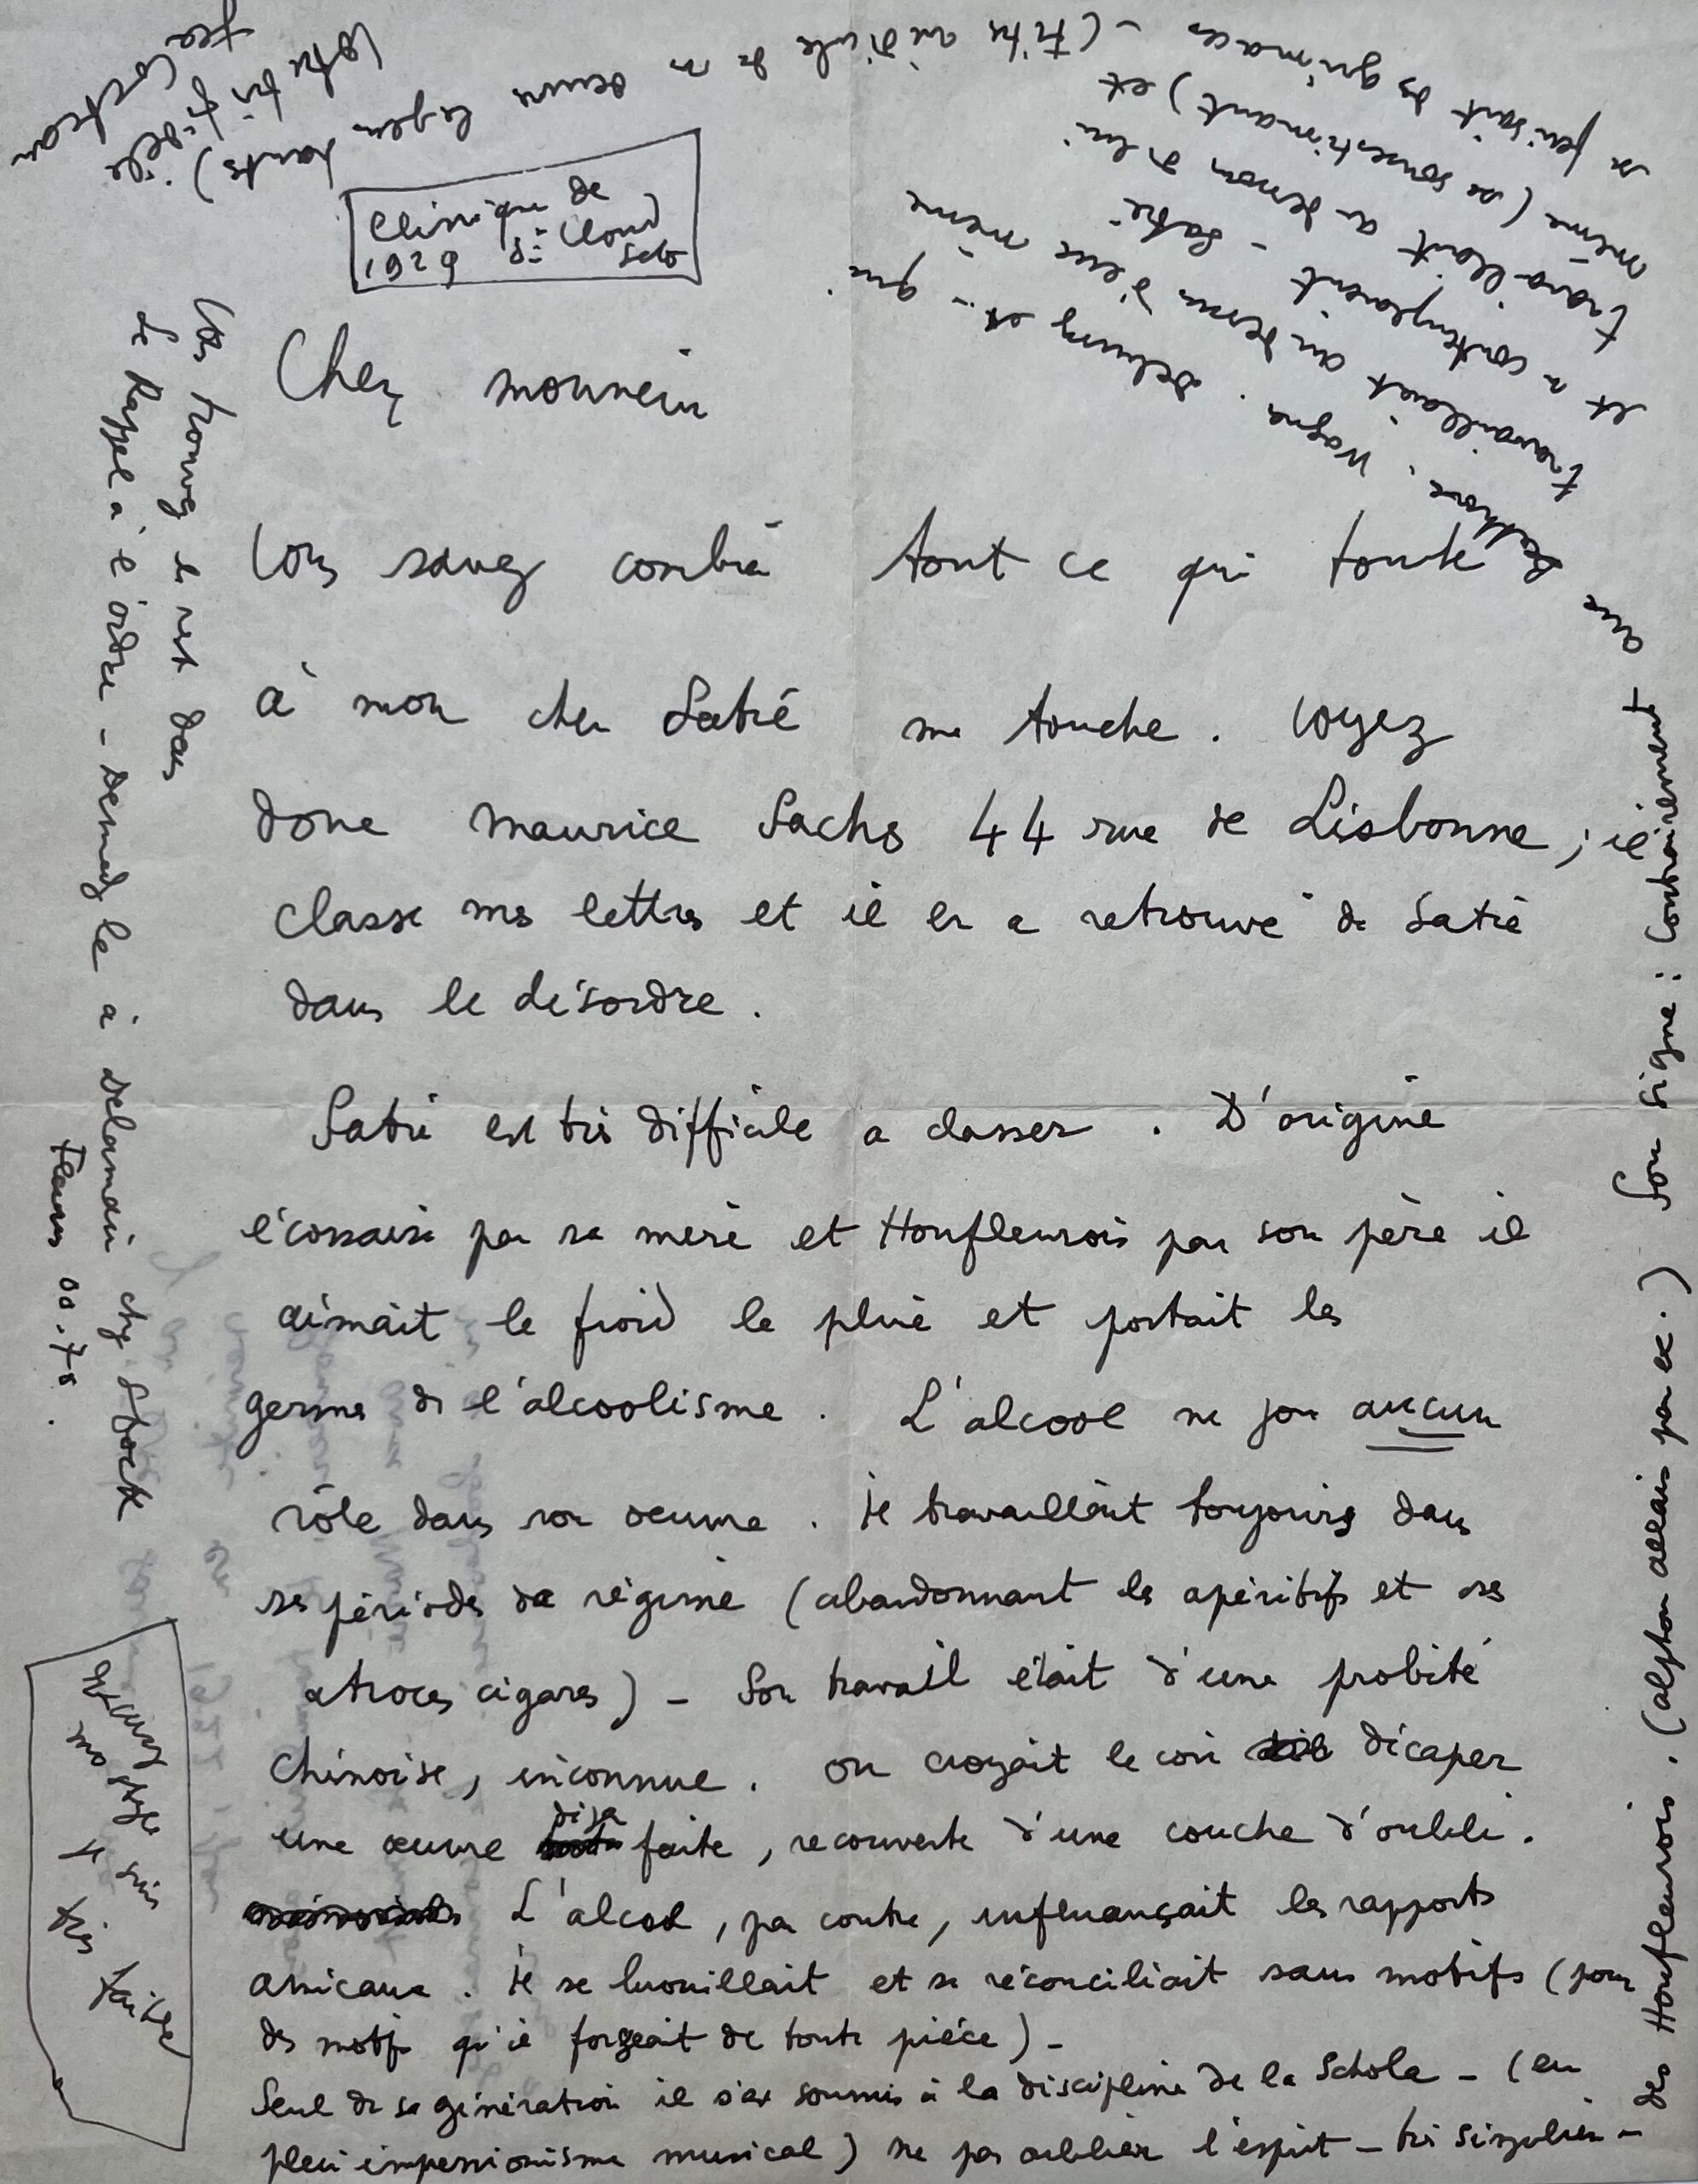 Clinique de
St Cloud
1929 Seto
Cher monsieur
Vous savez combien tout ce qui touche
à mon cher Satie me touche. Voyez
donc Maurice Sachs 44 rue de Lisbonne ; il
classe mes lettres et il en a retrouvé de Satie
dans le désordre.
Satie est très difficile a classer. D'origine
écossaise par sa mère et Honfleurois par son père il
aimait le froid la pluie et portait les
germes de l'alcoolisme. L'alcool ne joue aucun
rôle dans son œuvre. Il travaillait toujours dans
ses périodes de régime (abandonnant les apéritifs et ses
atroces cigares) - Son travail était d'une probité
chinoise, inconnue. On croyait le voir décaper
une œuvre déja faite, recouverte d'une couche d'oubli.
L'alcool, par contre, influençait les rapports
amicaux. Il se brouillait et se réconciliait sans motifs (pour
des motifs qu'il forgeait de toute pièce) -
Seul de sa génération il s'est soumis à la discipline de la Schola - (en
plein impressionisme musical) ne pas oublier l'esprit - très singulier -
des Honfleurois. (Alphonse Allais par ex.) Son signe : Contrairement
aux Beethoven, Wagner, Debussy etc - qui
travaillaient au dessus d'eux même
et se contemplaient - Satie
travaillait au dessous de lui
même (se sousestimant) et
se faisait des grimaces - (titre ridicule de ses œuvres légendaires)
Votre très fidèle
Jean Cocteau
Vous trouverez le reste dans
le Rappel à l'ordre - Demandez le à Delamain chez Stock
Fleurus 00.70.
Excusez
mon style
Je suis
très faible